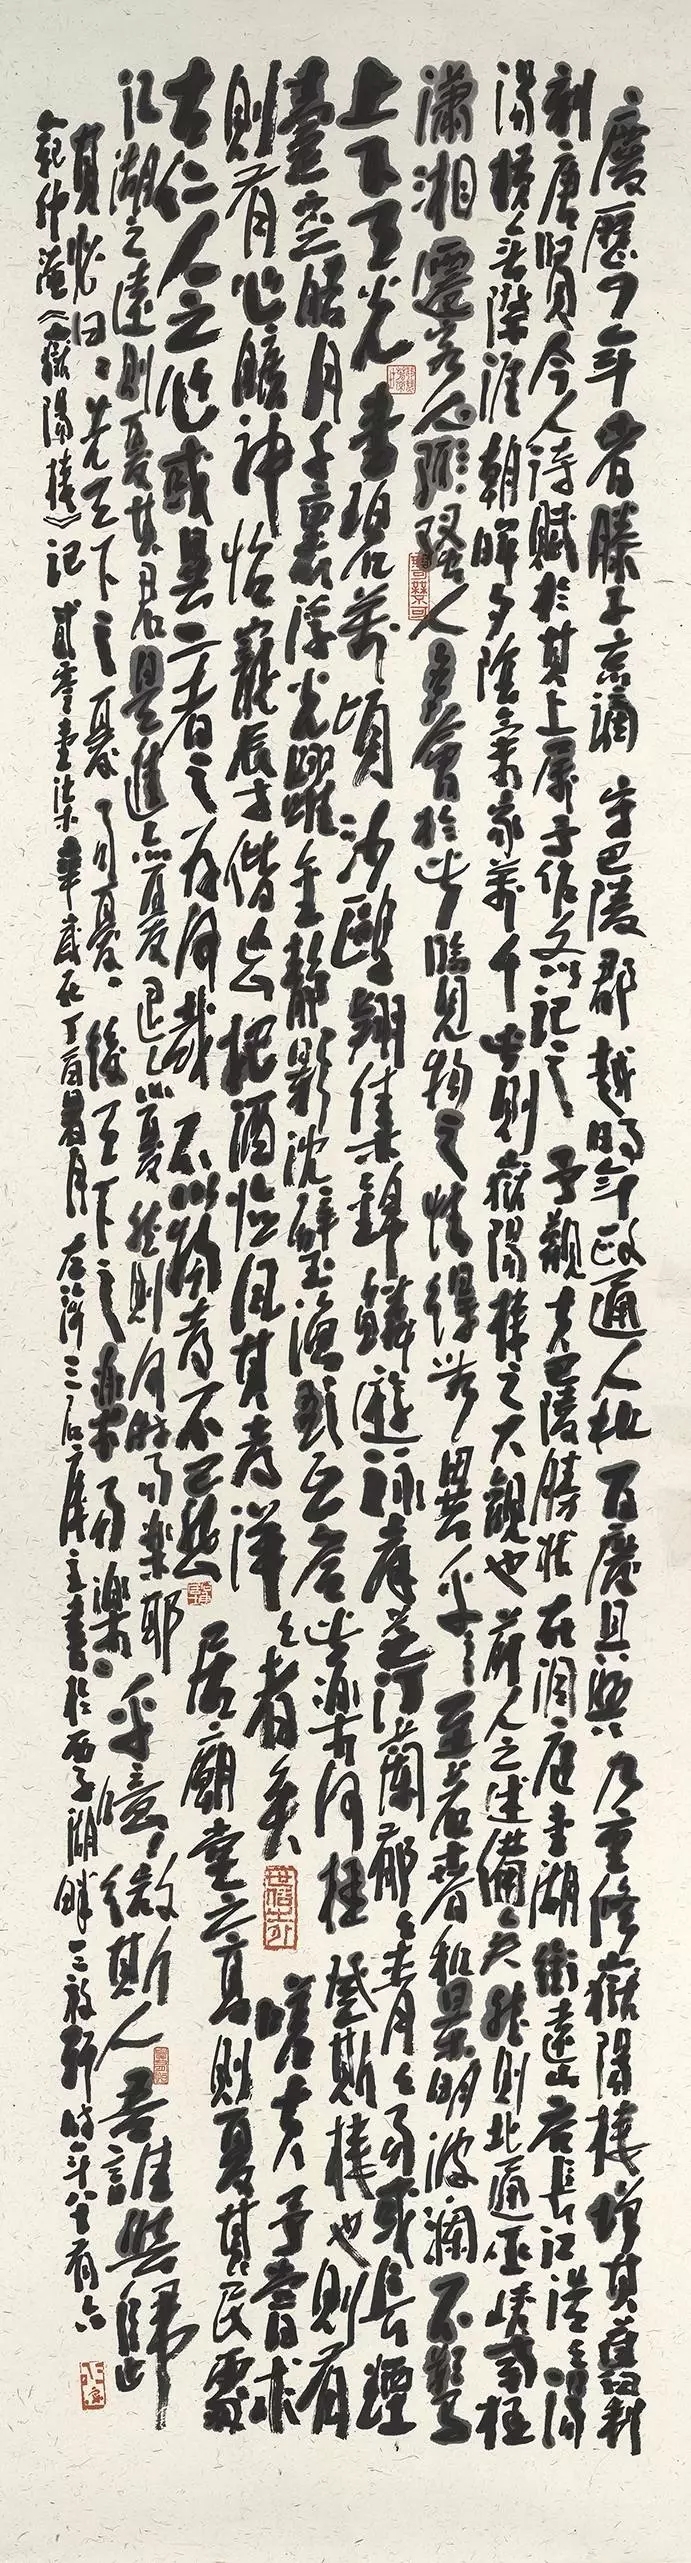 慶曆四年春滕子京謫守巴陵郡越明年政通人和百廢具興乃重修嶽陽樓增其舊制
刻唐賢今人詩賦於其上屬予作文以記之予觀夫巴陵勝狀在洞庭一湖銜遠山吞長江浩浩湯
湯橫無際涯朝暉夕陰氣象萬千此則嶽陽樓之大觀也前人之述備矣然則北通巫峽南極
瀟湘遷客騷人多會於此臨見物之情得無異乎至若春和景明波瀾不驚
上下天光壹碧萬頃沙鷗翔集錦鱗游泳岸芷汀蘭郁郁青青而或長煙
壹空皓月千里浮光躍金靜影沈璧漁歌互答此樂何極登斯樓也則有
則有心曠神怡寵辱皆忘把酒臨風其喜洋洋者矣嗟夫予嘗求
古仁人之心或異二者之為何哉不以物喜不以己悲居廟堂之高則憂其民處
江湖之遠則憂其君是進亦憂退亦憂然則何時而樂耶
其必曰先天下之憂而憂後天下之樂而樂乎噫微斯人吾誰與歸
范仲淹《嶽陽樓》記 貳零壹柒年歲在丁酉暑月 三石 主書於西子湖畔 時年八十有六